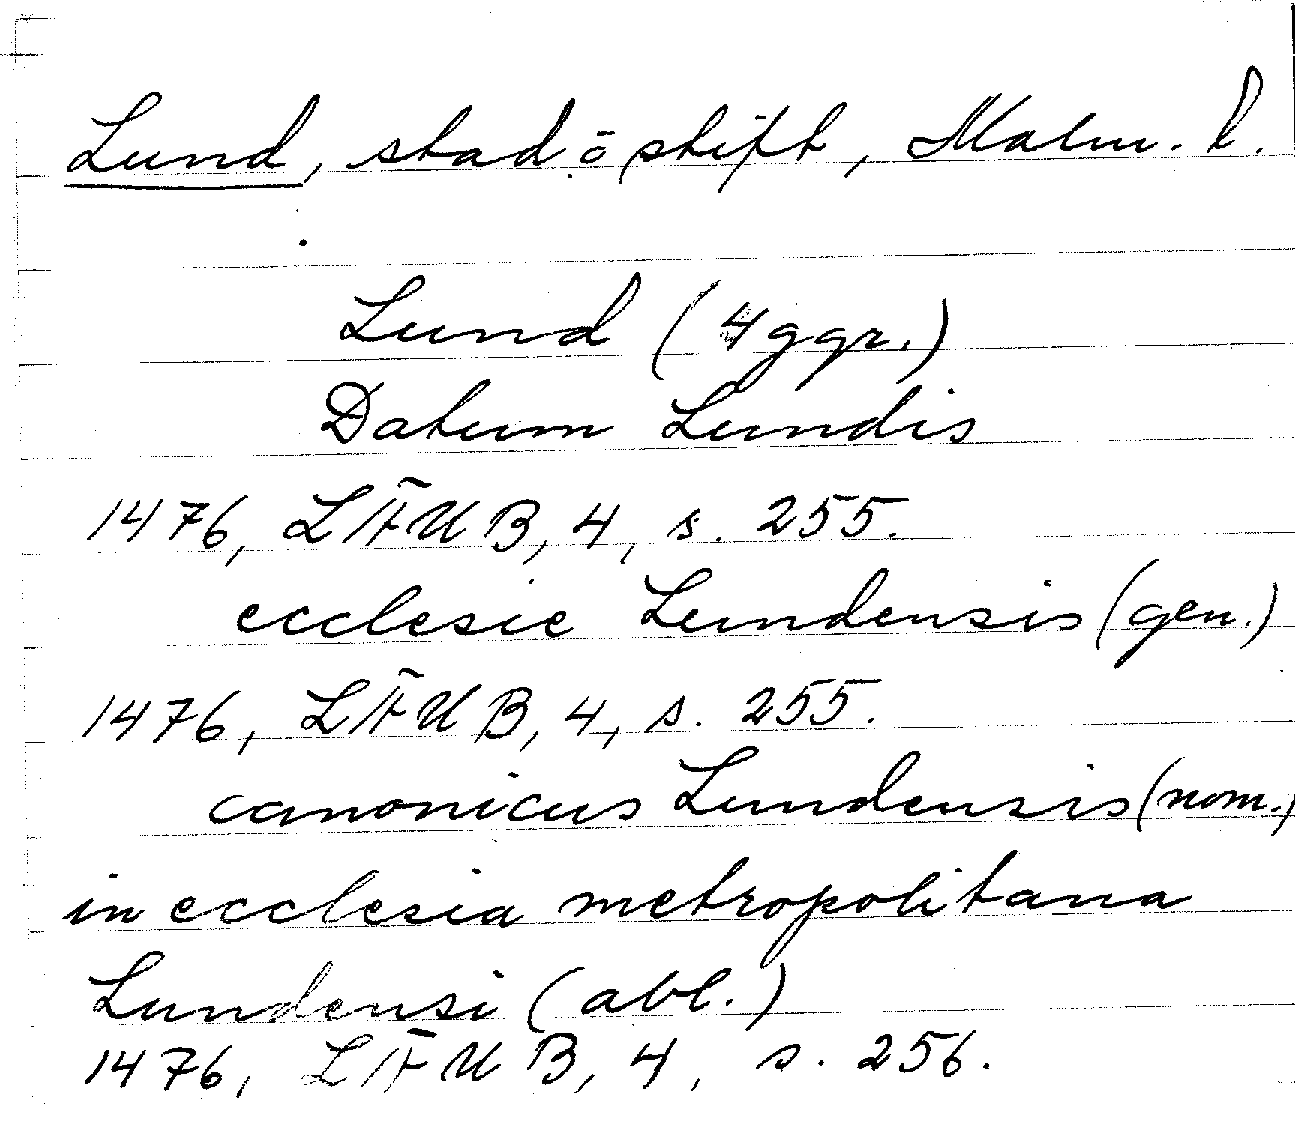 Lund, stad o stift, Malm. l.
Lund (4 ggr.)
Datum Lundis
1476, LÄUB, 4, s. 255.
ecclesie Lundensis (gen.)
1476, LÄUB, 4, s. 255.
canonicus Lundensis (nom.)
in ecclesia metropolitana
Lundensi (abl.)
1476, LÄUB, 4, s. 256.